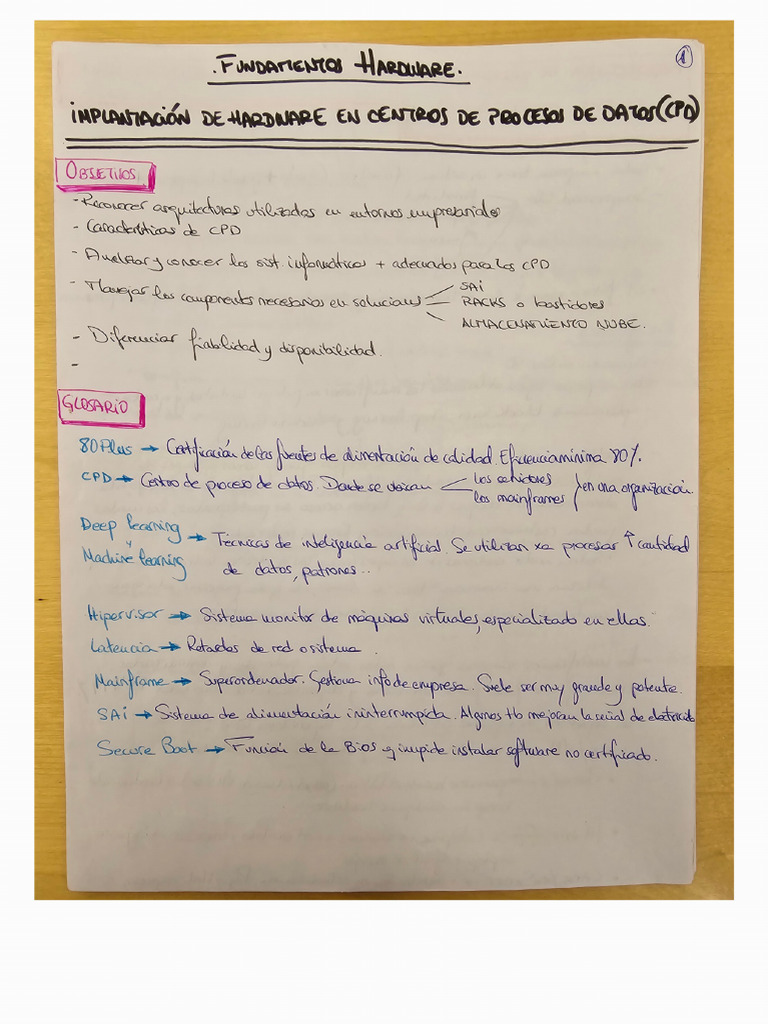 1
.FUNDAMENTOS HARDWARE.
IMPLANTACIÓN DE HARDWARE EN CENTROS DE PROCESOS DE DATOS (CPD)
OBJETIVOS
- Reconocer arquitecturas utilizadas en entornos empresariales
- Características de CPD
- Analizar y conocer los sist. informáticos + adecuados para los CPD
- Manejar los componentes necesarios en soluciones
SAI
RACKS o bastidores
ALMACENAMIENTO NUBE.
- Diferenciar fiabilidad y disponibilidad.
-
GLOSARIO
80Plus → Certificación de las fuentes de alimentación de calidad. Eficiencia mínima 80%.
CPD → Centro de proceso de datos. Donde se ubican
los servidores
los mainframes
en una organización.
Deep learning
y
Machine learning
→ Técnicas de inteligencia artificial. Se utilizan xa procesar ↑ cantidad
de datos, patrones..
Hipervisor → Sistema monitor de máquinas virtuales, especializado en ellas.
Latencia → Retardos de red o sistema.
Mainframe → Superordenador. Gestiona info de empresa. Suele ser muy grande y potente.
SAI → Sistema de alimentación ininterrumpida. Algunos tb mejoran la señal de electricidad
Secure Boot → Función de la Bios q impide instalar software no certificado.